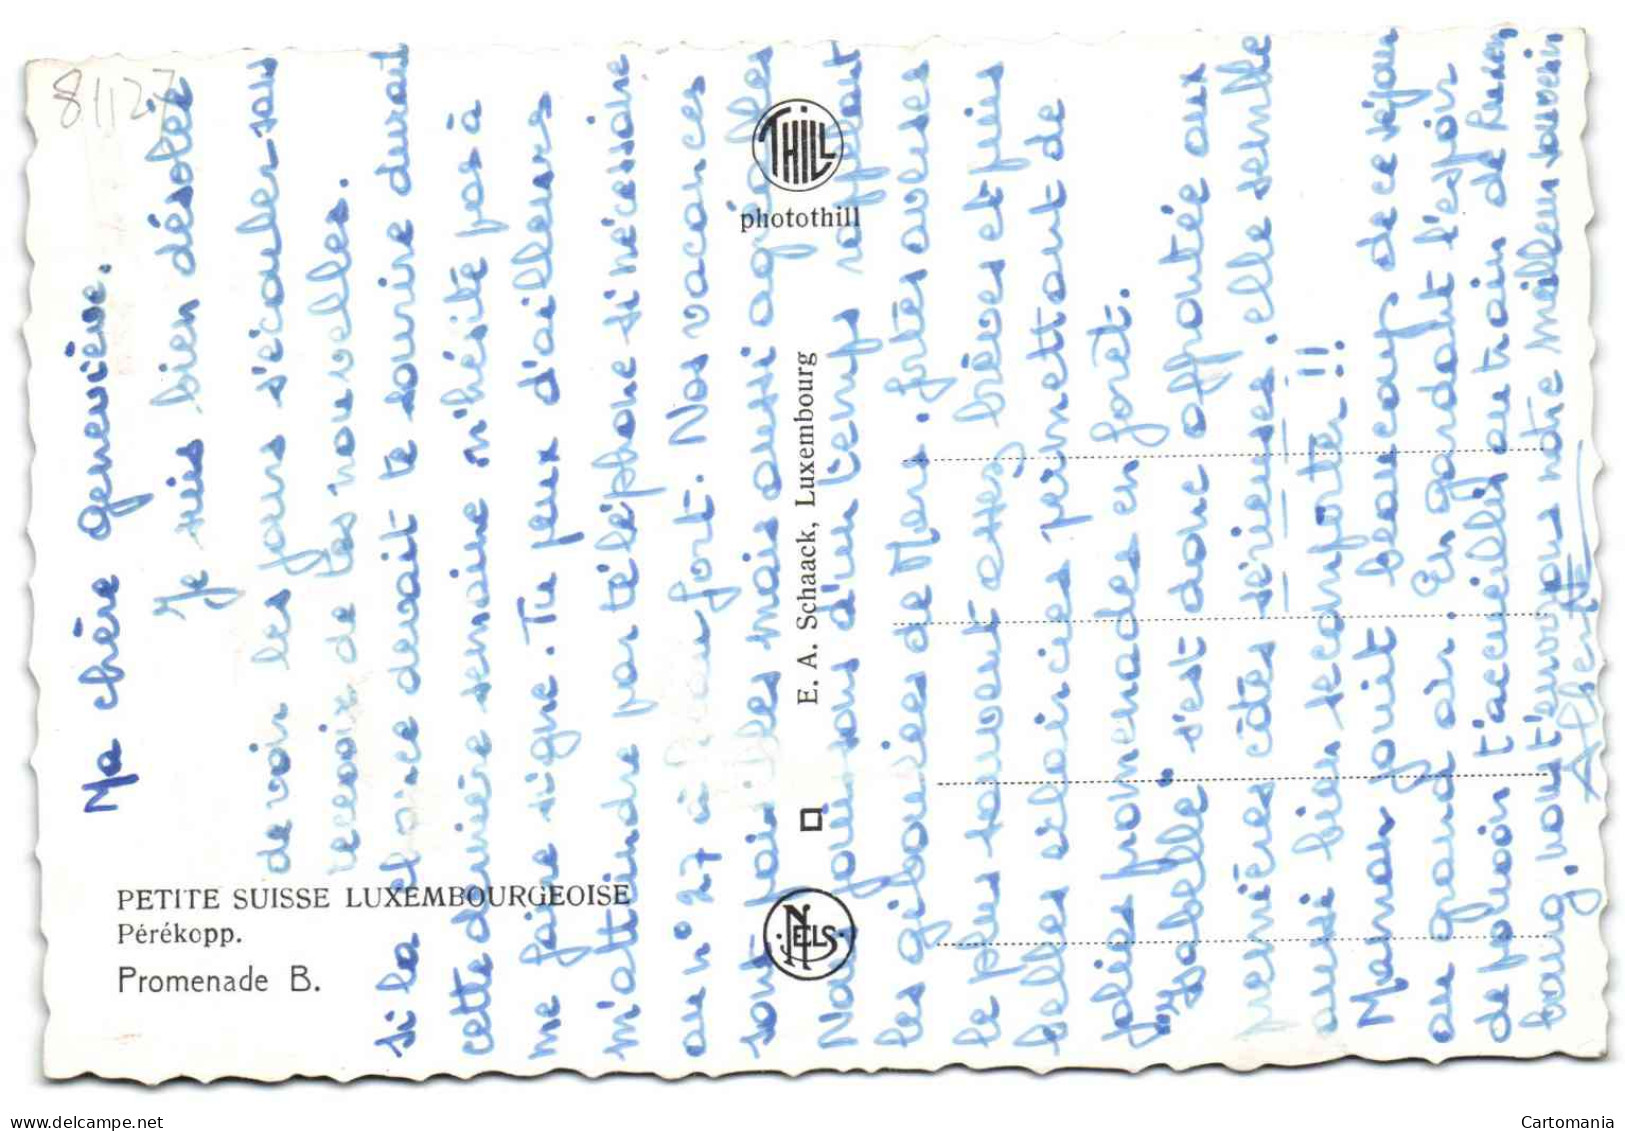 81127
Ma chère geneviève.
Je suis bien désolée
de voir les jours s'écouler sans
recevoir de tes nouvelles.
si la chance devait te sourire durant
cette dernière semaine n'hésite pas à
me faire signe. Tu peux d'ailleurs
m'atteindre par téléphone si nécessaire
au n° 27 à fort. Nos vacances
sont paisibles mais aussi agréables
Nous jouissons d'un temps
les giboulées de Mars. fortes averses
le plus souvent assez brèves et puis
belles éclaircies permettant de
jolies promenades en forêt.
"Isabelle" s'est donc affrontée aux
premières côtes sérieuses, elle semble
aussi bien se comporter !!
Maman jouit beaucoup de ce séjour
au grand air. En gardant l'espoir
de pouvoir t'accueillir au train de
bourg, nous t'envoyons notre meilleur souvenir
Albert
PETITE SUISSE LUXEMBOURGEOISE
Pérékopp.
Promenade B.
THILL
photothill
E. A. Schaack, Luxembourg
NELS
Cartomania